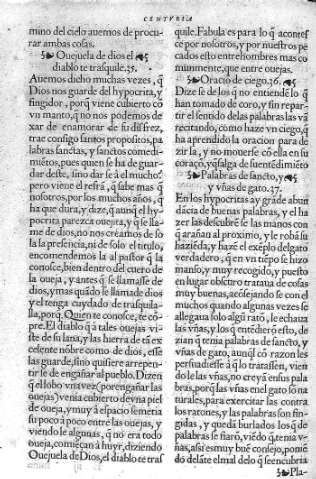 CENTVRIA
mino del cielo auemos de procu-
rar ambas cosas.
Ouejuela de dios el
diablo te trasquile. 25.
Auemos dicho muchas vezes, q̃
Dios nos guarde del hypocrita, y
fingidor, porq̃ viene cubierto cõ
vn manto, q̃ no nos podemos de
xar de enamorar de su disfrez,
trae consigo santos propositos, pa
labras sanctas, y sanctos comedi-
miẽtos, pues quien se ha de guar-
dar deste, sino dar se à el mucho?
pero viene el refrã, q̃ sabe mas q̃
nosotros, por los muchos años, q̃
ha que dura, y dize, aunq̃ el hy-
pocrita parezca oueja, y q̃ se lla-
me de dios, no nos creamos de so
la la presencia, ni de solo el titulo,
encomendemos la al pastor q̃ la
conosce, bien dentro del cuero de
la oueja, y antes q̃ se llamasse de
dios, y mas quãdo se llama de dios
y el tenga cuydado de trasquila-
lla, porq̃, Quien te conosce, te cõ-
pre. El diablo q̃ à tales ouejas vi-
ste de su lana, y las hierra de tã ex
celente nõbre como de dios, esse
las guarde, sino quisiere arrepen-
tirse de engañar al pueblo. Dizen
q̃ el lobo vna vez (por engañar las
ouejas) venia cubierto de vna piel
de oueja, y muy à espacio se metia
su poco à poco entre las ouejas, y
viendo le algunas, q̃ no era todo
oueja, comẽçan à huyr, diziendo
Ouejuela de Dios, el diablo te tras
quile. Fabula es para lo q̃ acontes
ce por nosotros, y por nuestros pe
cados esto entre hombres mas co
munmente, que entre ouejas.
Oracio de ciego. 26.
Dize se de los q̃ no entiendẽ lo q̃
han tomado de coro, y sin repar-
tir el sentido de las palabras las vã
recitando, como haze vn ciego, q̃
ha aprendido la oracion para de
zir la, y no mouerse cõ ella en su
coraçõ, q̃ salga de su entẽdimiẽto
Palabras de sancto, y
vñas de gato. 27.
En los hypocritas ay grãde abun
dãcia de buenas palabras, y el ha
zer las descubrẽ se las manos con
q̃ arañan al proximo, y le robã su
haziẽda, y hazẽ el exẽplo del gato
verdadero, q̃ en vn tiẽpo se hizo
manso, y muy recogido, y puesto
en lugar obscuro trataua de cosas
muy buenas, acõsejando se con el
muchos quando algunas vezes se
allegaua solo algũ ratõ, le echaua
las vñas, y los q̃ entẽdierõ esto, de
zian q̃ tenia palabras de sancto, y
vñas de gato, aunq̃ cõ razon les
persuadiesse à q̃ lo tratassen, vien
do le las vñas, no creyã en sus pala
bras, porq̃ las vñas en el gato sõ na
turales, para exercitar las contra
los ratones, y las palabras son fin-
gidas, y quedã burlados los q̃ de
palabras se fiarõ, viẽdo q̃ tenia v-
ñas, assi es muy buẽ consejo, poniẽ
dó delãte el mal delo q̃ se encubria
Pla-